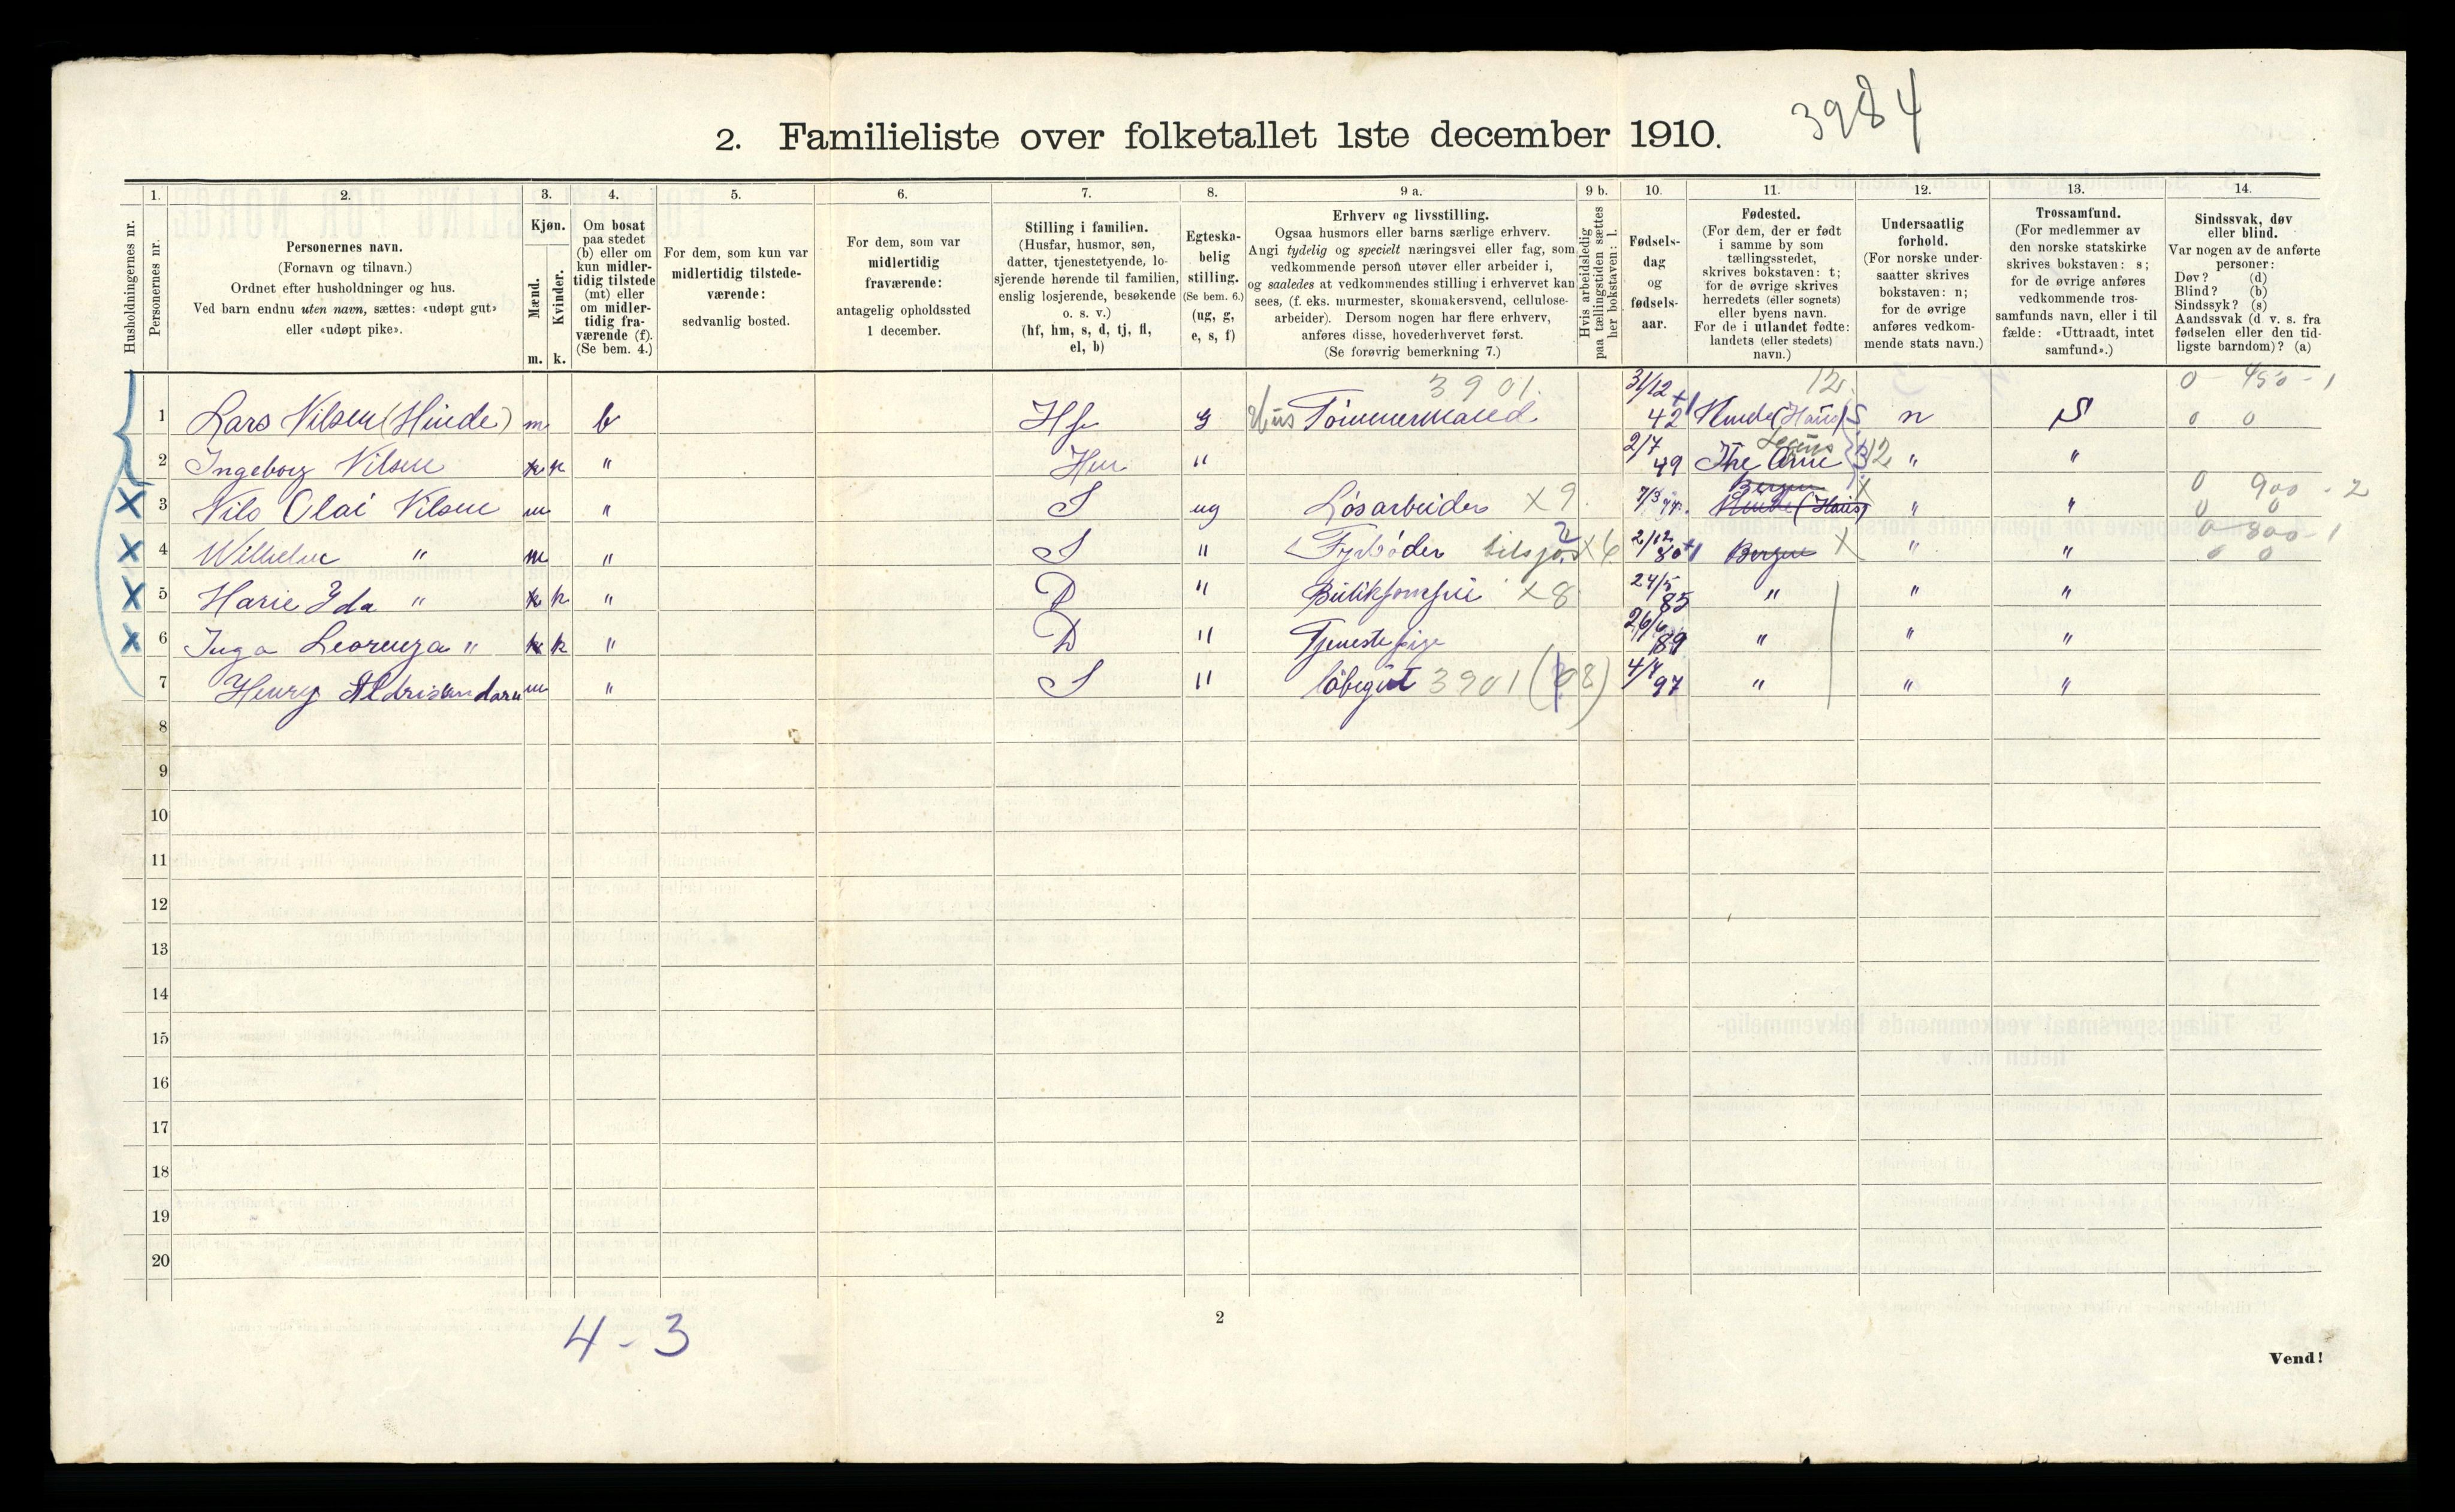 3984
2. Familieliste over folketallet 1ste december 1910.
Husholdningernes nr.
1. Personernes nr.
2. Personernes navn.
(Fornavn og tilnavn.)
Ordnet efter husholdninger og hus.
Ved barn endnu uten navn, sættes: «udøpt gut»
eller «udøpt pike».
3. Kjøn.
Mænd. Kvinder.
m. k.
4. Om bosat
paa stedet
(b) eller om
kun midler-
tidig tilstede
(mt) eller
om midler-
tidig fra-
værende (f).
(Se bem. 4.)
5. For dem, som kun var
midlertidig tilstede-
værende:
sedvanlig bosted.
6. For dem, som var
midlertidig
fraværende:
antagelig opholdssted
1 december.
7. Stilling i familien.
(Husfar, husmor, søn,
datter, tjenestetyende, lo-
sjerende hørende til familien,
enslig losjerende, besøkende
o. s. v.)
(hf, hm, s, d, tj, fl,
el, b)
8. Egteska-
belig
stilling.
(Se bem. 6.)
(ug, g,
e, s, f)
9 a. Erhverv og livsstilling.
Ogsaa husmors eller barns særlige erhverv.
Angi tydelig og specielt næringsvei eller fag, som
vedkommende person utøver eller arbeider i,
og saaledes at vedkommendes stilling i erhvervet kan
sees, (f. eks. murmester, skomakersvend, cellulose-
arbeider). Dersom nogen har flere erhverv,
anføres disse, hovederhvervet først.
(Se forøvrig bemerkning 7.)
9 b. Hvis arbeidsledig
paa tællingstiden sættes
her bokstaven: l.
10. Fødsels-
dag
og
fødsels-
aar.
11. Fødested.
(For dem, der er født
i samme by som
tællingsstedet,
skrives bokstaven: t;
for de øvrige skrives
herredets (eller sognets)
eller byens navn.
For de i utlandet fødte:
landets (eller stedets)
navn.)
12. Undersaatlig
forhold.
(For norske under-
saatter skrives
bokstaven: n;
for de øvrige
anføres vedkom-
mende stats navn.)
13. Trossamfund.
(For medlemmer av
den norske statskirke
skrives bokstaven: s;
for de øvrige anføres
vedkommende tros-
samfunds navn, eller i til
fælde: «Uttraadt, intet
samfund».)
14. Sindssvak, døv
eller blind.
Var nogen av de anførte
personer:
Døv? (d)
Blind? (b)
Sindssyk? (s)
Aandssvak (d. v. s. fra
fødselen eller den tid-
ligste barndom)? (a)
3901 12 0 - 450 - 1
1 Lars Nilsen (Hinde) m b Hf g Hus Tømmermand 31/12 42 Hinde (Haus) n S 0 0
2 Ingeborg Nilsen k k " Hm " 2/7 49 12 " "
Bergen 0 900 - 2
3 Nils Olai Nilsen m " S ug Løsarbeider X 9 7/3 Hinde (Haus) " " 0 0
0 800 - 1
4 Wilhelm " m " S " Fyrbøder tilsjøs X 6 2/12 80 Bergen X " " 0 0
5 Marie Ida " k k " D " Butikjomfru X 8 24/5 85 " " "
6 Inga Leorenza " k k " D " Tjenestepige 26/6 89 " " "
7 Henry m " S " Løbegut 3901 (98) 4/4 97 " " "
8
9
10
11
12
13
14
15
16
17
18
19
20
4 - 3
2
Vend!